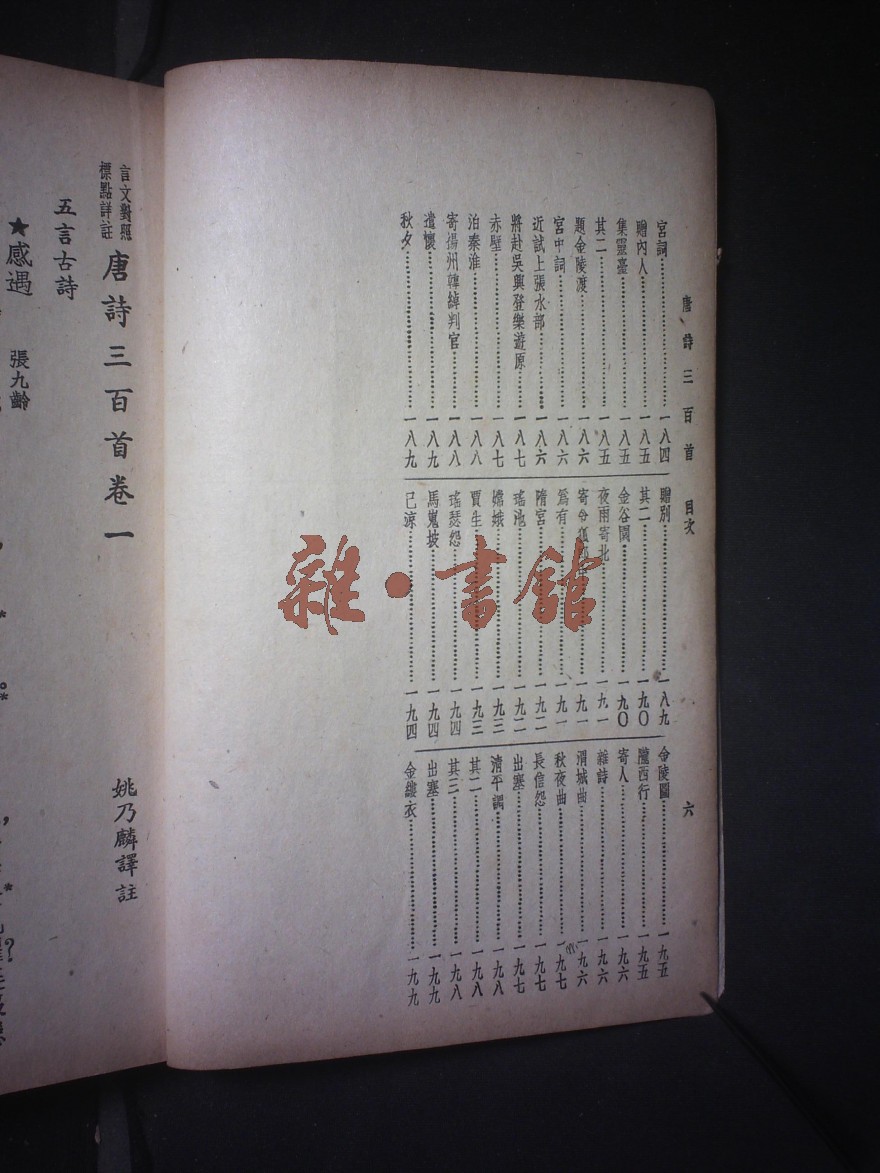 唐詩三百首 目次 六
宮詞……一八四
贈內人……一八五
集靈臺……一八五
其二……一八五
題金陵渡……一八六
宮中詞……一八六
近試上張水部……一八六
將赴吳興登樂遊原……一八七
赤壁……一八七
泊秦淮……一八八
寄揚州韓綽判官……一八八
遣懷……一八九
秋夕……一八九
贈別……一八九
其二……一九〇
金谷園……一九〇
夜雨寄北……一九一
寄令……一九一
爲有……一九一
隋宮……一九二
瑤池……一九二
嫦娥……一九三
賈生……一九三
瑤瑟怨……一九四
馬嵬坡……一九四
已涼……一九四
金陵圖……一九五
隴西行……一九五
寄人……一九六
雜詩……一九六
渭城曲……一九六
秋夜曲……一九七
長信怨……一九七
出塞……一九七
清平調……一九八
其二……一九八
其三……一九八
出塞……一九九
金縷衣……一九九
雜·書館
言文對照
標點詳註
唐詩三百首卷一
姚乃麟譯註
五言古詩
★感遇 張九齡